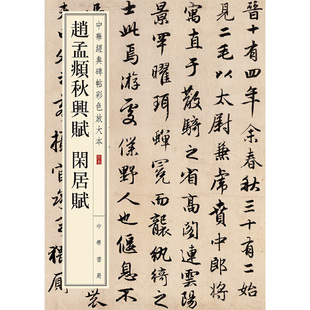 中華經典碑帖彩色放大本
趙孟頫秋興賦 閑居賦
中華書局
晉十有四年余春秋三十有二
見二毛以太尉兼虎賁中郎將
寓直于散騎高閣連雲陽
罕曜珥蟬冕而襲紈綺之
此焉游處僕野人也偃息